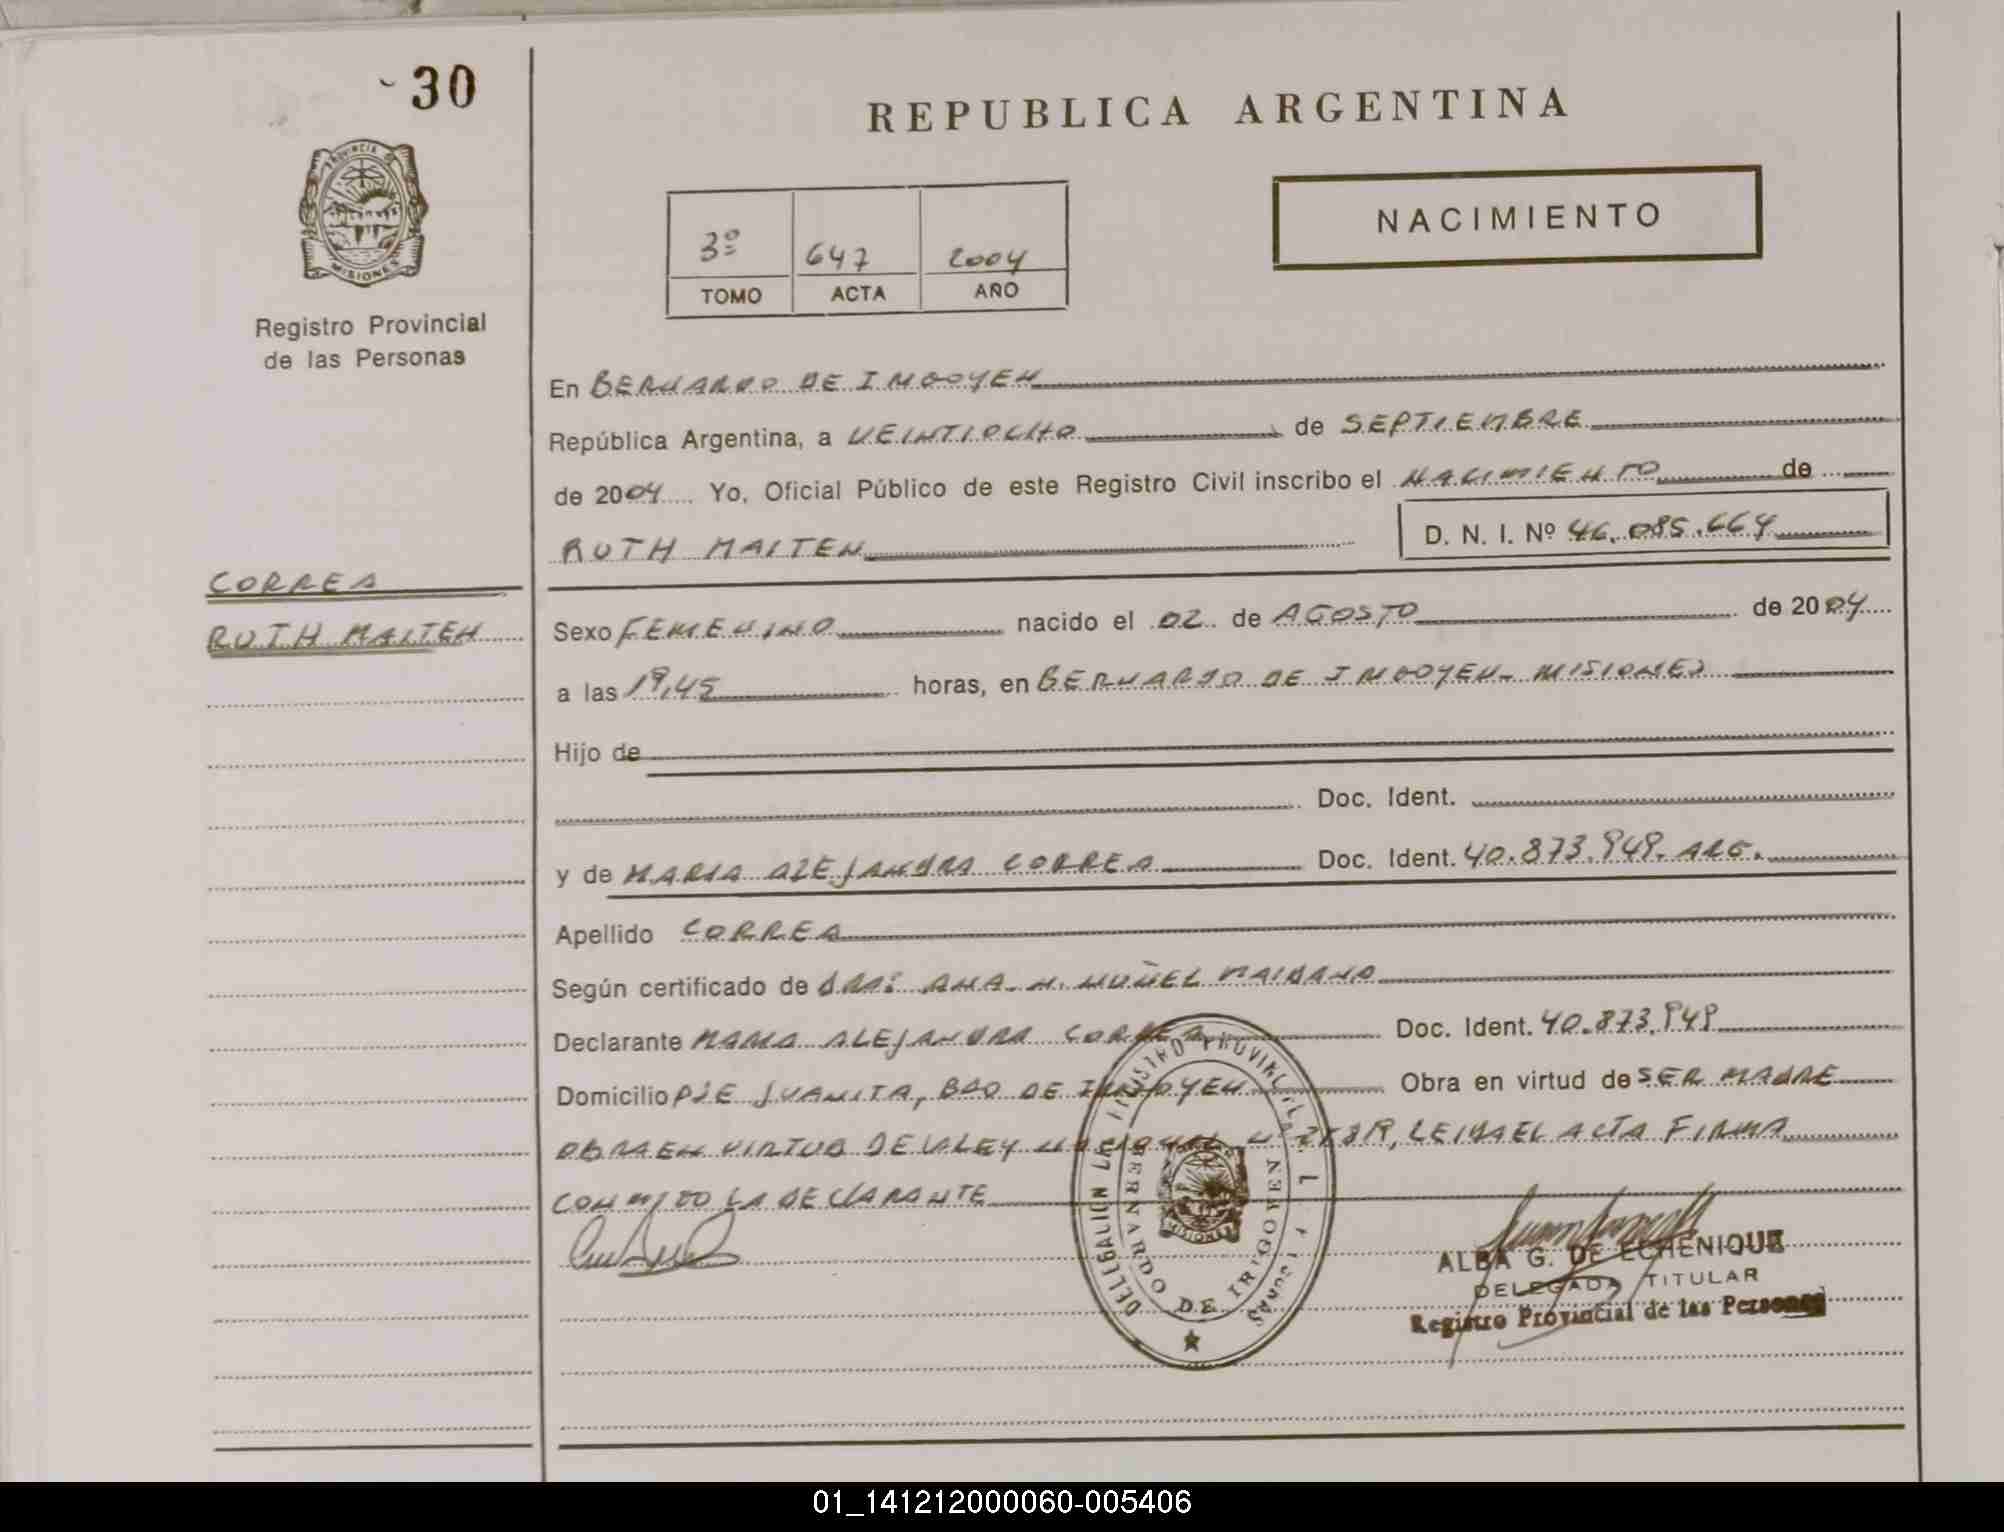 30
REPUBLICA ARGENTINA
PROVINCIA DE
MISIONES
3º 647 2004
TOMO ACTA AÑO
NACIMIENTO
Registro Provincial
de las Personas
En BERNARDO DE IRIGOYEN
República Argentina, a VEINTIOCHO de SEPTIEMBRE
de 2004 Yo, Oficial Público de este Registro Civil inscribo el NACIMIENTO de
RUTH MAITEN D. N. I. Nº 46.085.664
CORREA
RUTH MAITEN
Sexo FEMENINO nacido el 02 de AGOSTO de 2004
a las 19,45 horas, en BERNARDO DE IRIGOYEN - MISIONES
Hijo de
Doc. Ident.
y de MARIA ALEJANDRA CORREA Doc. Ident. 40.873.949. ARG.
Apellido CORREA
Según certificado de DRA: ANA. N. MAIDANA
Declarante MARIA ALEJANDRA CORREA Doc. Ident. 40.873.949
Domicilio PJE JUANITA, BDO DE IRIGOYEN Obra en virtud de SER MADRE
OBRA EN VIRTUD DE LA LEY NACIONAL LEIDA EL ACTA FIRMA
CONMIGO LA DECLARANTE
BERNARDO DE IRIGOYEN
MISIONES
ALBA G. DE ECHENIQUE
DELEGADA TITULAR
Registro Provincial de las Personas
01_141212000060-005406